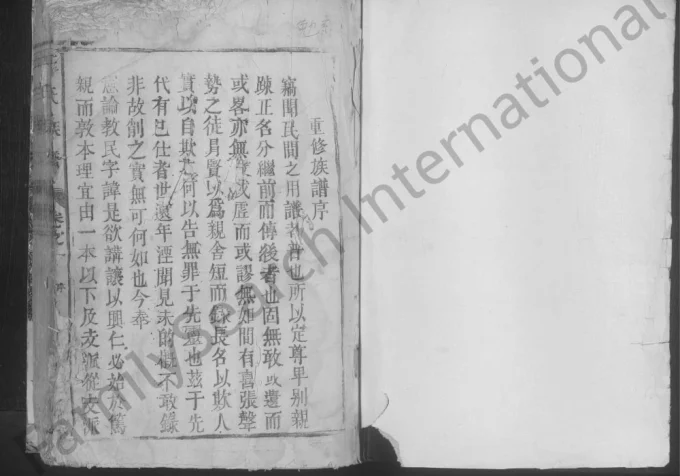 重修族譜序
竊聞民間之用譜者普也所以定尊卑別親
踈正名分繼前而傳後者也固無敢或遺而
或畧亦無或虛而或謬無如間有喜張聲
勢之徒冐賢以為親舍短而錄長名以欺人
實以自欺是何以告無罪于先靈也茲于先
代有已仕者世遠年湮聞見未的槩不敢錄
非故削之實無可何如也今奉
論教民字諱是欲講讓以興仁必始於篤
親而敦本理宜由一本以下及支派從支派
族譜
卷之一
序
FamilySearch International